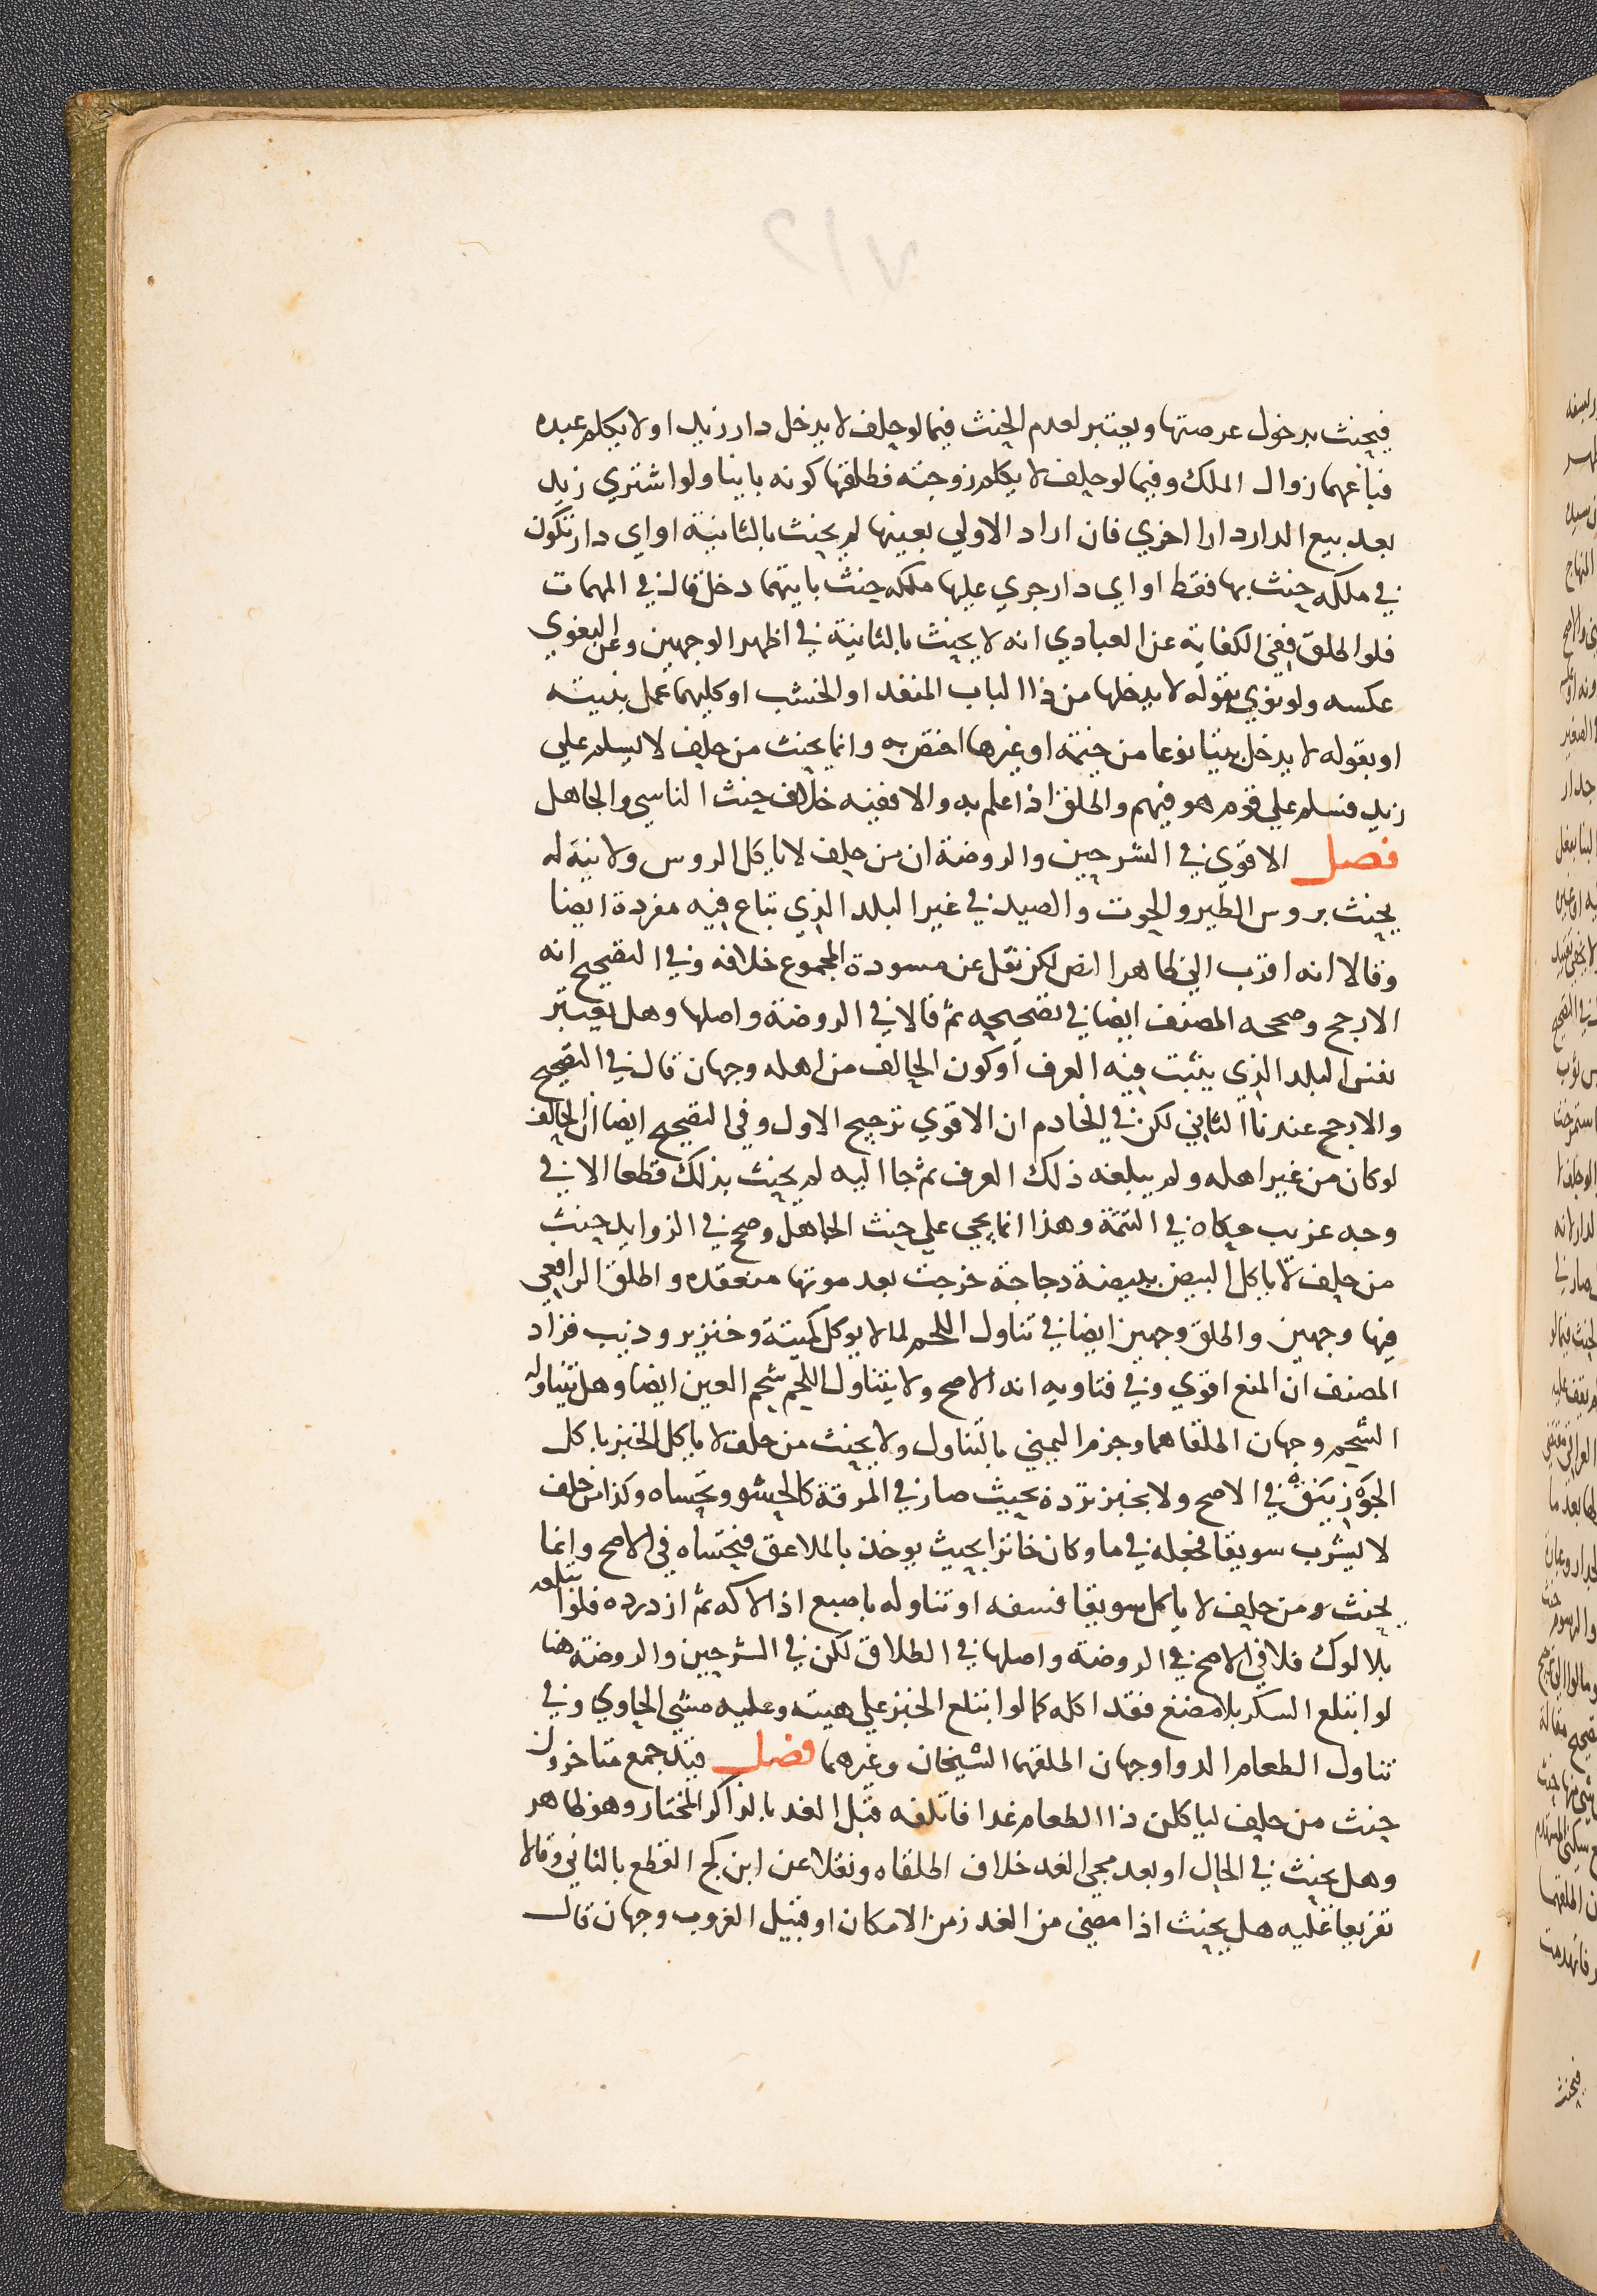 فيحنث بدخول عرصتها ويعتبر لعدم الحنث فيما لو حلف لا يدخل دار زيد او لا يكلم عبده
فباعهما زوال الملك وفيما لو حلف لا يكلم زوجته فطلقها كونه باينا ولو اشتري زيد
بعد بيع الدار دارا اخري فان اراد الاولي بعينها لم يحنث بالثانية او اي دار تكون
في ملكه حنث بها فقط او اي دار جري عليها ملكه حنث بايتهما دخل قال في المهمات
فلو اطلق ففي الكفاية عن العبادي انه لا يحنث بالثانية في اظهر الوجهين وعن البغوي
عكسه ولو نوي بقوله لا يدخلها من ذا الباب المنفد او الخشب او كليهما عمل بنيته
او بقوله لا يدخل بيتا نوعا من خيمة او غيرها اختص به وانما يحنث من حلف لا يسلم علي
زيد فسلم علي قوم هو فيهم واطلق اذا علم به والا ففيه خلاف حنث الناسي والجاهل
فصل الاقوي في الشرحين والروضة ان من حلف لا ياكل الروس ولا نية له
يحنث بروس الطير والحوت والصيد في غير البلد الذي تباع فيه مفردة ايضا
وقالا انه اقرب الي ظاهر النص لكن نقل عن مسودة المجموع خلافه وفي التصحيح انه
الارجح وصححه المصنف ايضا في تصحيحه ثم قالا في الروضة واصلها وهل يعتبر
نفس البلد الذي يثبت فيه العرف او كون الحالف من اهله وجهان قال في التصحيح
والارجح عندنا الثاني لكن في الخادم ان الاقوي ترجيح الاول وفي التصحيح ايضا ان الحالف
لو كان من غير اهله ولم يبلغه ذلك العرف ثم جا اليه لم يحنث بذلك قطعا الا في
وجه غريب حكاه في التتمة وهذا انما يجي علي حنث الجاهل وصحح في الزوايد حنث
من حلف لا ياكل البيض ببيضة دجاجة خرجت بعد موتها منعقده واطلق الرافعي
فيها وجهين واطلق وجهين ايضا في تناول اللحم لما لا يوكل كميتة وخنزير وذيب فزاد
المصنف ان المنع اقوي وفي فتاويه انه الاصح ولا يتناول اللحم شحم العين ايضا وهل يتناوله
الشحم وجهان اطلقاهما وجزم اليمني بالتناول ولا يحنث من حلف لا ياكل الخبز باكل
الجوزينق في الاصح ولا بخبز ثرده بحيث صار في المرقة كالحسو وتحساه وكذا من حلف
لا يشرب سويقا فجعله في ما وكان خاثرا بحيث يوخذ بالملاعق فتحساه في الاصح وانما
يحنث من حلف لا ياكل سويقا فسفه او تناوله باصبع اذا لاكه ثم ازدرده فلو ابتلعه
بلا لوك فلا في الاصح في الروضة واصلها في الطلاق لكن في الشرحين والروضة هنا
لو ابتلع السكر بلا مضغ فقد اكله كما لو ابتلع الخبز علي هيته وعليه مشي الحاوي وفي
تناول الطعام الدوا وجهان اطلقهما الشيخان وغيرهما فصل قيد جمع متاخرون
حنث من حلف لياكلن ذا الطعام غدا فاتلفه قبل الغد بالذاكر المختار وهو ظاهر
وهل يحنث في الحال او بعد مجي الغد خلاف اطلقاه ونقلا عن ابن كج القطع بالثاني وقالا
تفريعا عليه هل يحنث اذا مضي من الغد زمن الامكان او قبيل الغروب وجهان قال